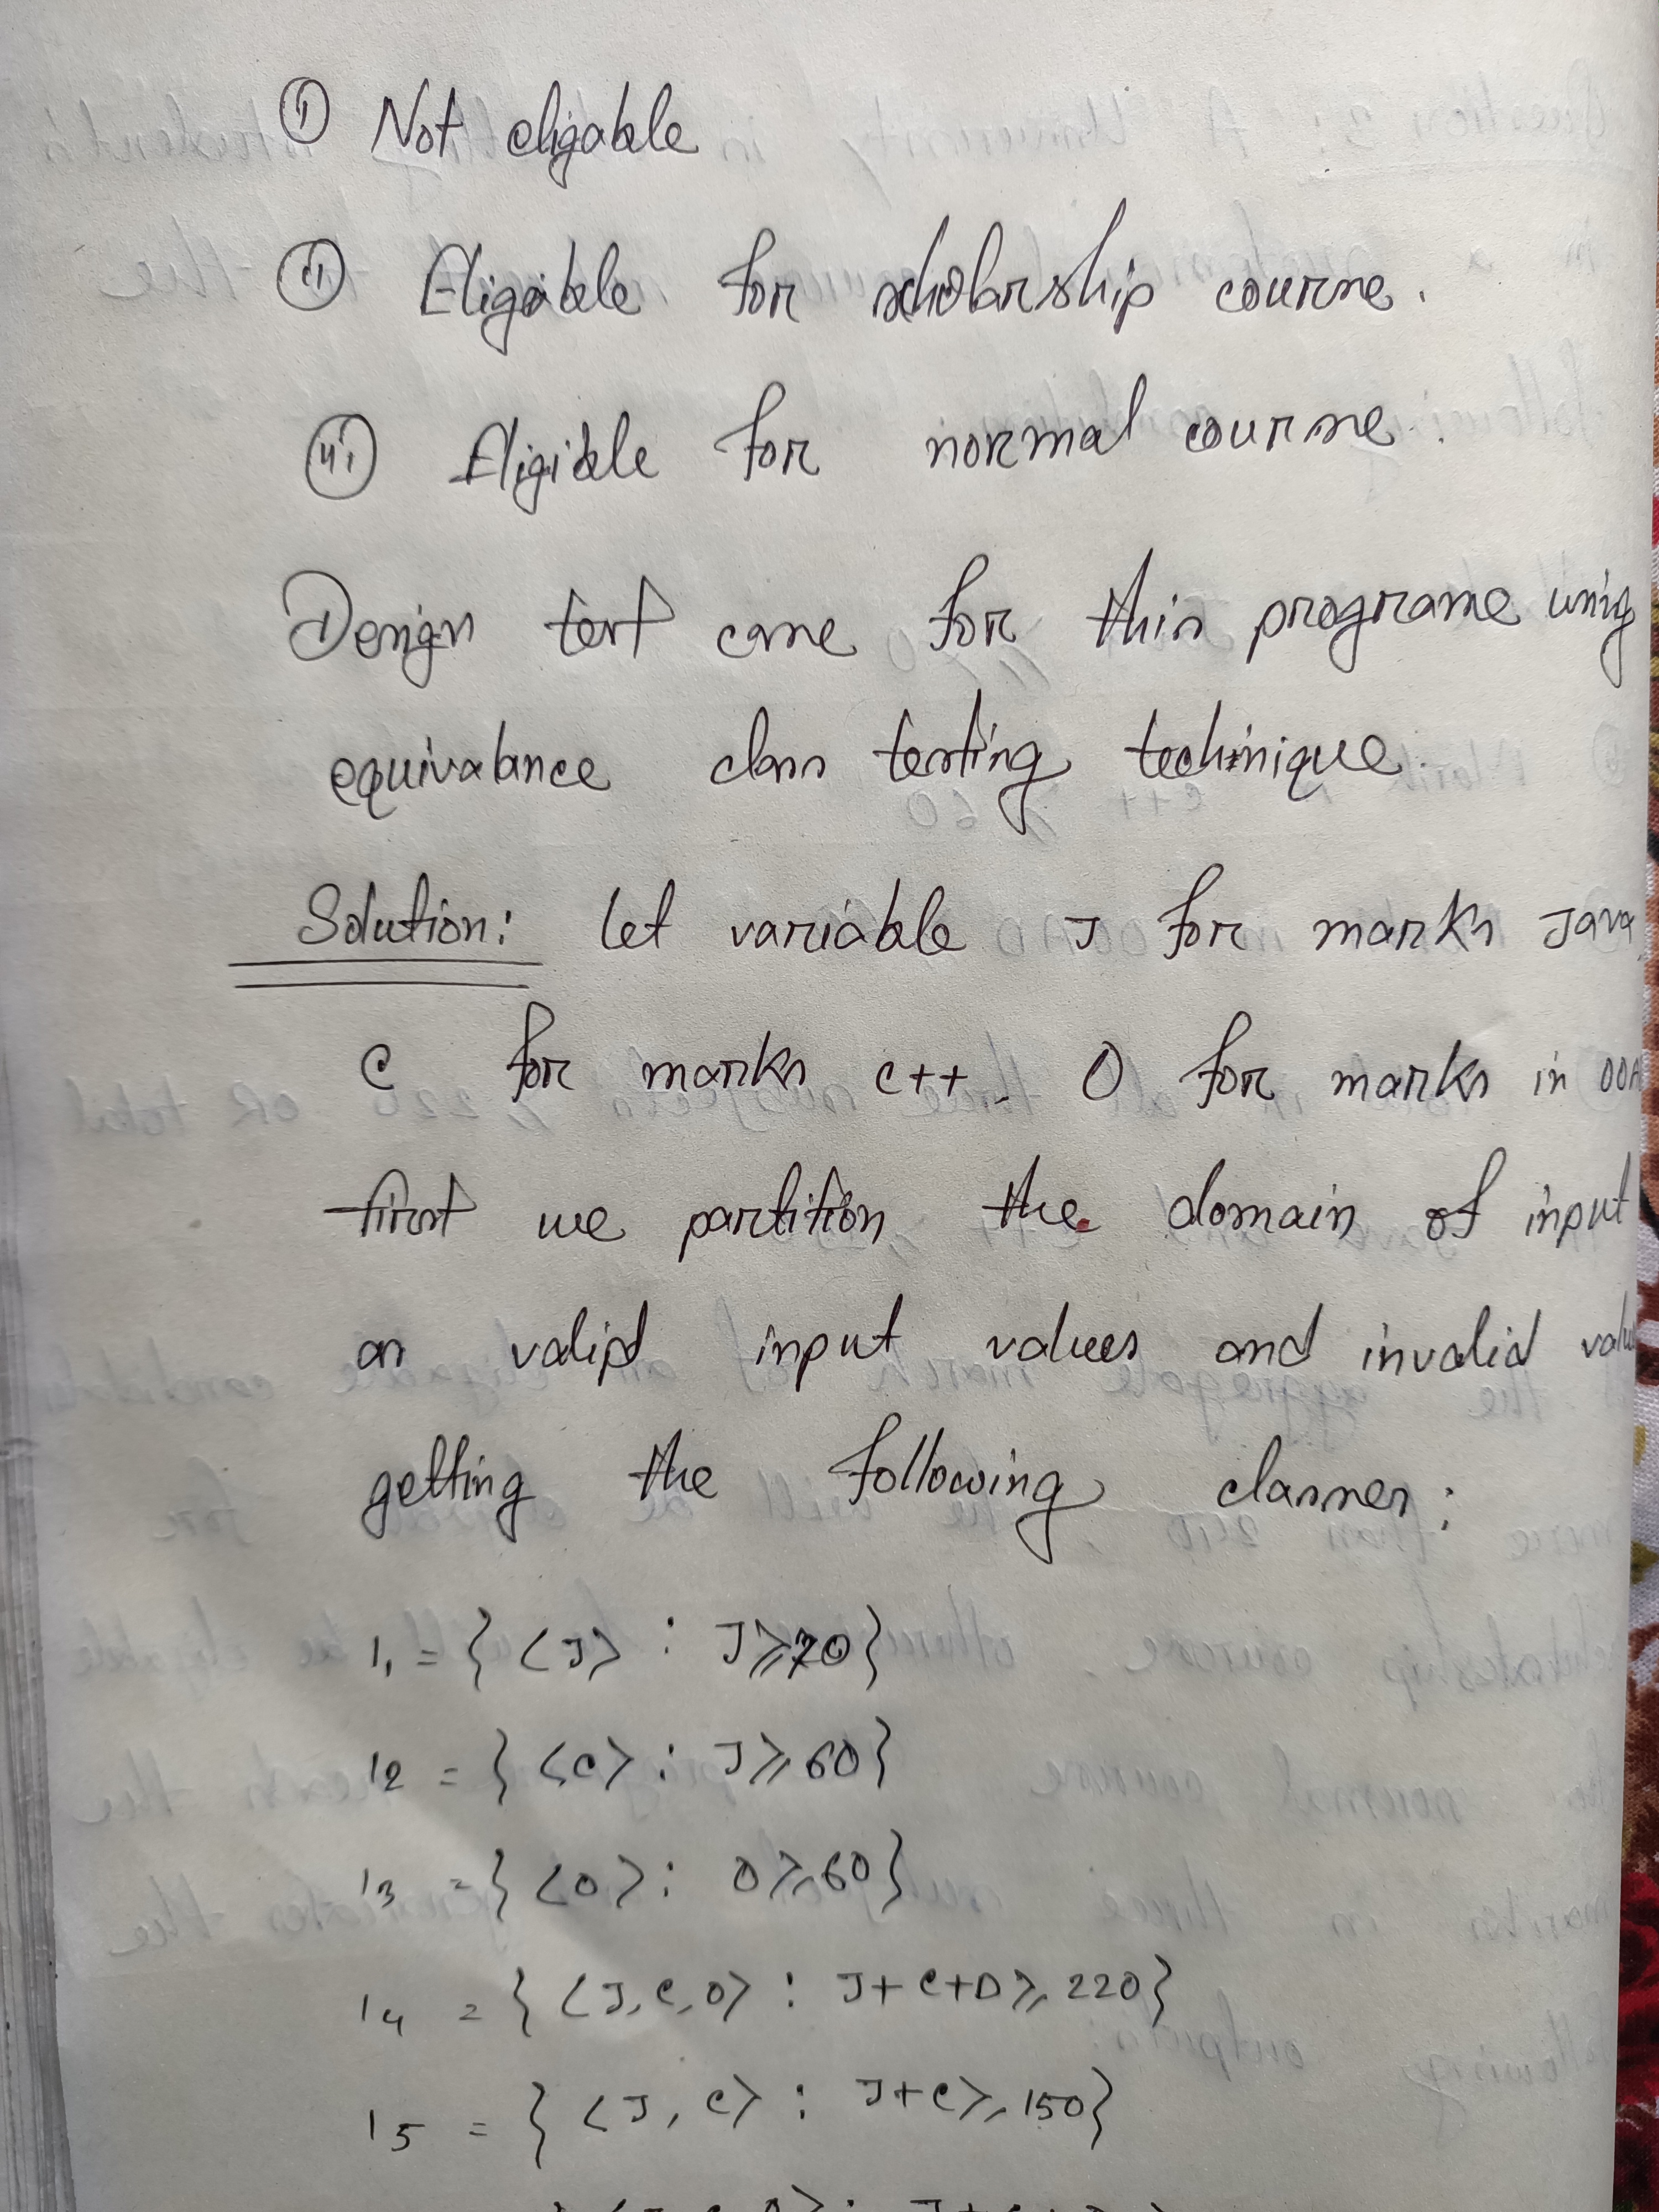 ① Not eligable
ⅱ Eligable for scholarship course.
ⅲ Eligible for normal course.
Design test case for this programe using
equivalance class testing technique.
Solution: let variable J for marks Java
C for marks C++. O for marks in OOA
first we partition the domain of input
as valid input values and invalid valu
getting the following classes:
I1 = { <J> : J ≥ 70 }
I2 = { <C> : J ≥ 60 }
I3 = { <O> : O ≥ 60 }
I4 = { <J, C, O> : J+C+O ≥ 220 }
I5 = { <J, C> : J+C ≥ 150 }